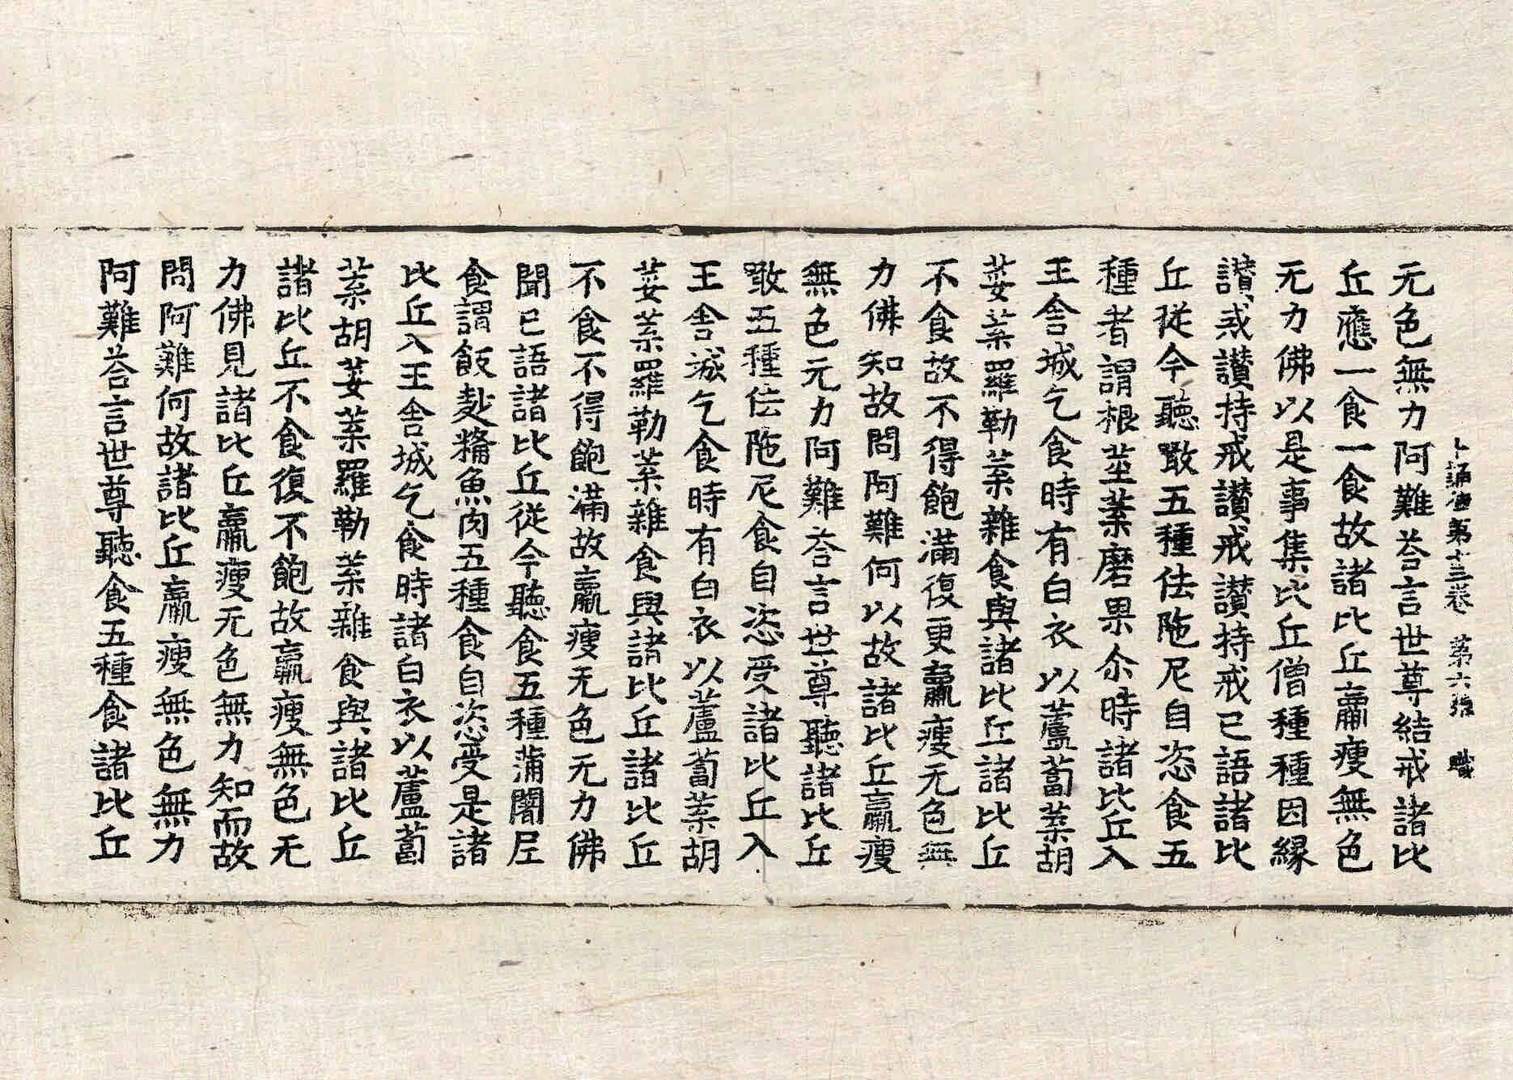 十誦律第十三卷 第六張 職
无色無力阿難荅言世尊結戒諸比
丘應一食一食故諸比丘羸瘦無色
无力佛以是事集比丘僧種種因縁
讃戒讃持戒讃戒讃持戒已語諸比
丘從今聽噉五種佉陁尼自恣食五
種者謂根莖葉磨果尒時諸比丘入
王舍城乞食時有白衣以蘆蔔葉胡
荽葉羅勒葉雜食與諸比丘諸比丘
不食故不得飽滿復更羸瘦无色無
力佛知故問阿難何以故諸比丘羸瘦
無色无力阿難荅言世尊聽諸比丘
噉五種佉陁尼食自恣受諸比丘入
王舍城乞食時有白衣以蘆蔔葉胡
荽葉羅勒葉雜食與諸比丘諸比丘
不食不得飽滿故羸瘦无色无力佛
聞已語諸比丘從今聽食五種蒲闍尼
食謂飯麨糒魚肉五種食自恣受是諸
比丘入王舍城乞食時諸白衣以蘆蔔
葉胡荽葉羅勒葉雜食與諸比丘
諸比丘不食復不飽故羸瘦無色无
力佛見諸比丘羸瘦无色無力知而故
問阿難何故諸比丘羸瘦無色無力
阿難荅言世尊聽食五種食諸比丘